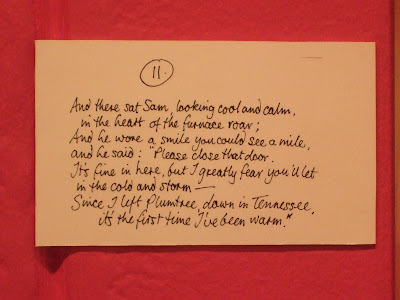 11.
And there sat Sam, looking cool and calm,
in the heart of the furnace roar;
And he wore a smile you could see a mile,
and he said: "Please close that door.
It's fine in here, but I greatly fear you'll let
in the cold and storm—
Since I left Plumtree, down in Tennessee,
it's the first time I've been warm."